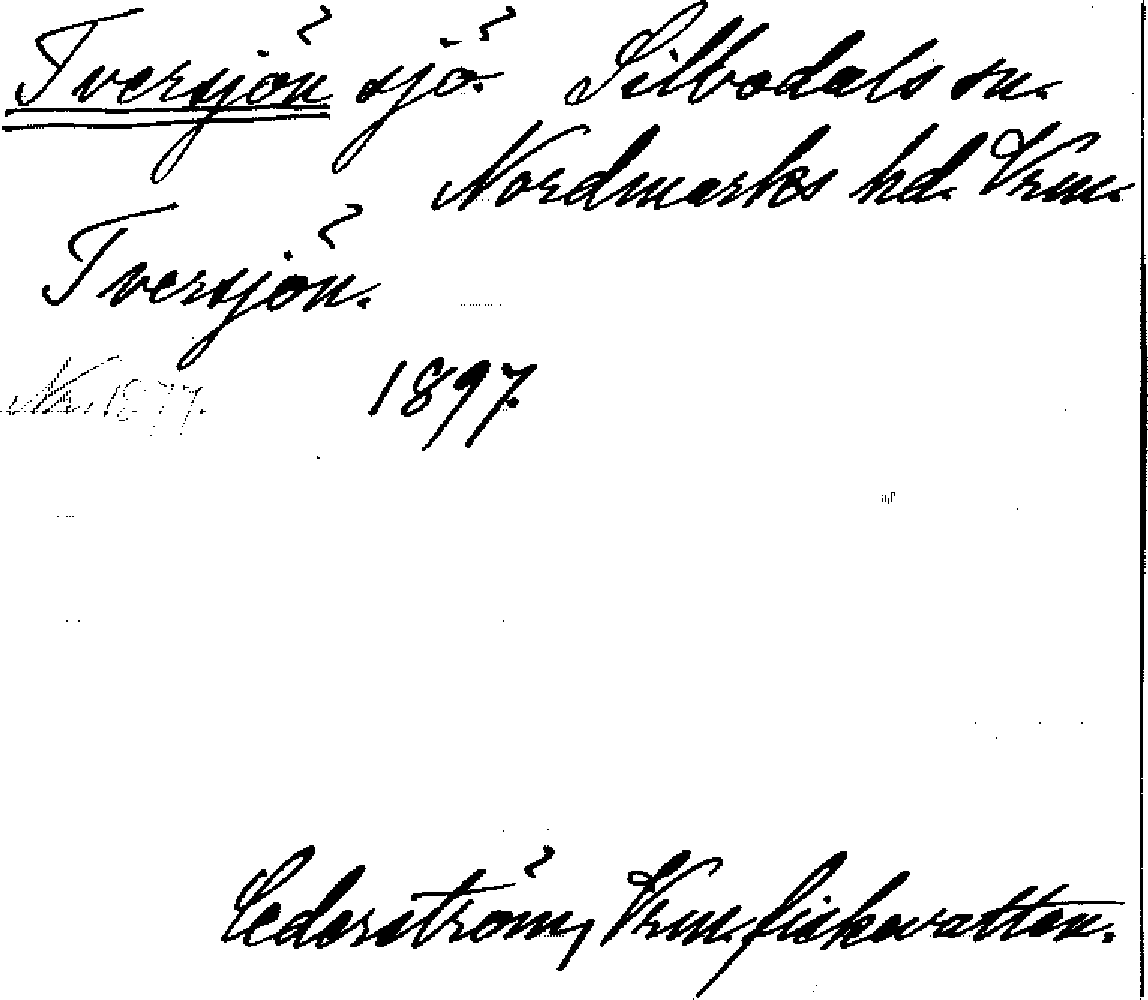 Tversjön sjö. Silbodals sn.
Nordmarks hd. Vrm.
Tversjön.
1897.
Cederström, Vrm. fiskevatten.